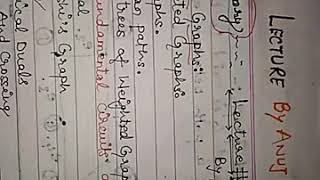 LECTURE By ANUJ
Lecture #
By
Graphs:
ted Graphs.
phs.
an paths.
Trees of Weighted Grap
undamental Circuits
al
Graph
ical Duals
And Crossing